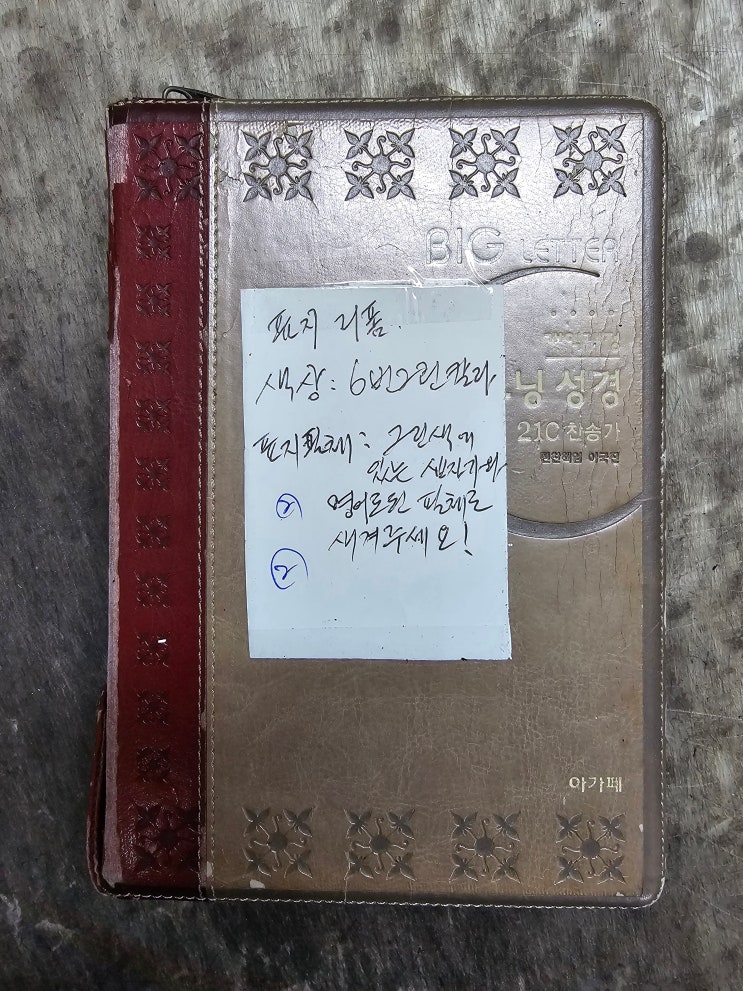 BIG LETTER
닝 성경
21C 찬송가
아가페
표지 리폼.
색상: 6번그린칼라
표지필체: 그린색에
있는 십자가와
② 영어로된 필체로
새겨주세요!
②